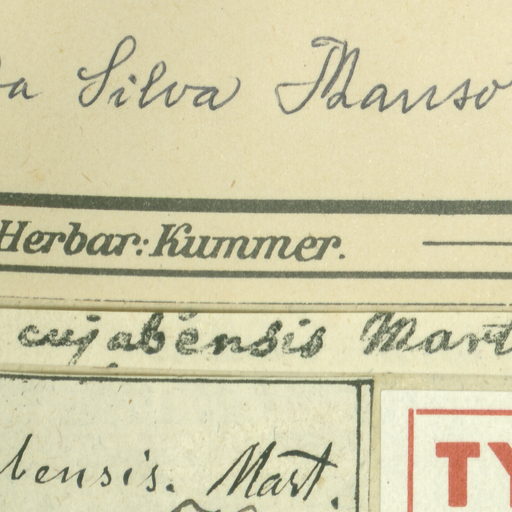 da Silva Manso
Herbar: Kummer.
cujabensis Mart
bensis. Mart.
TY